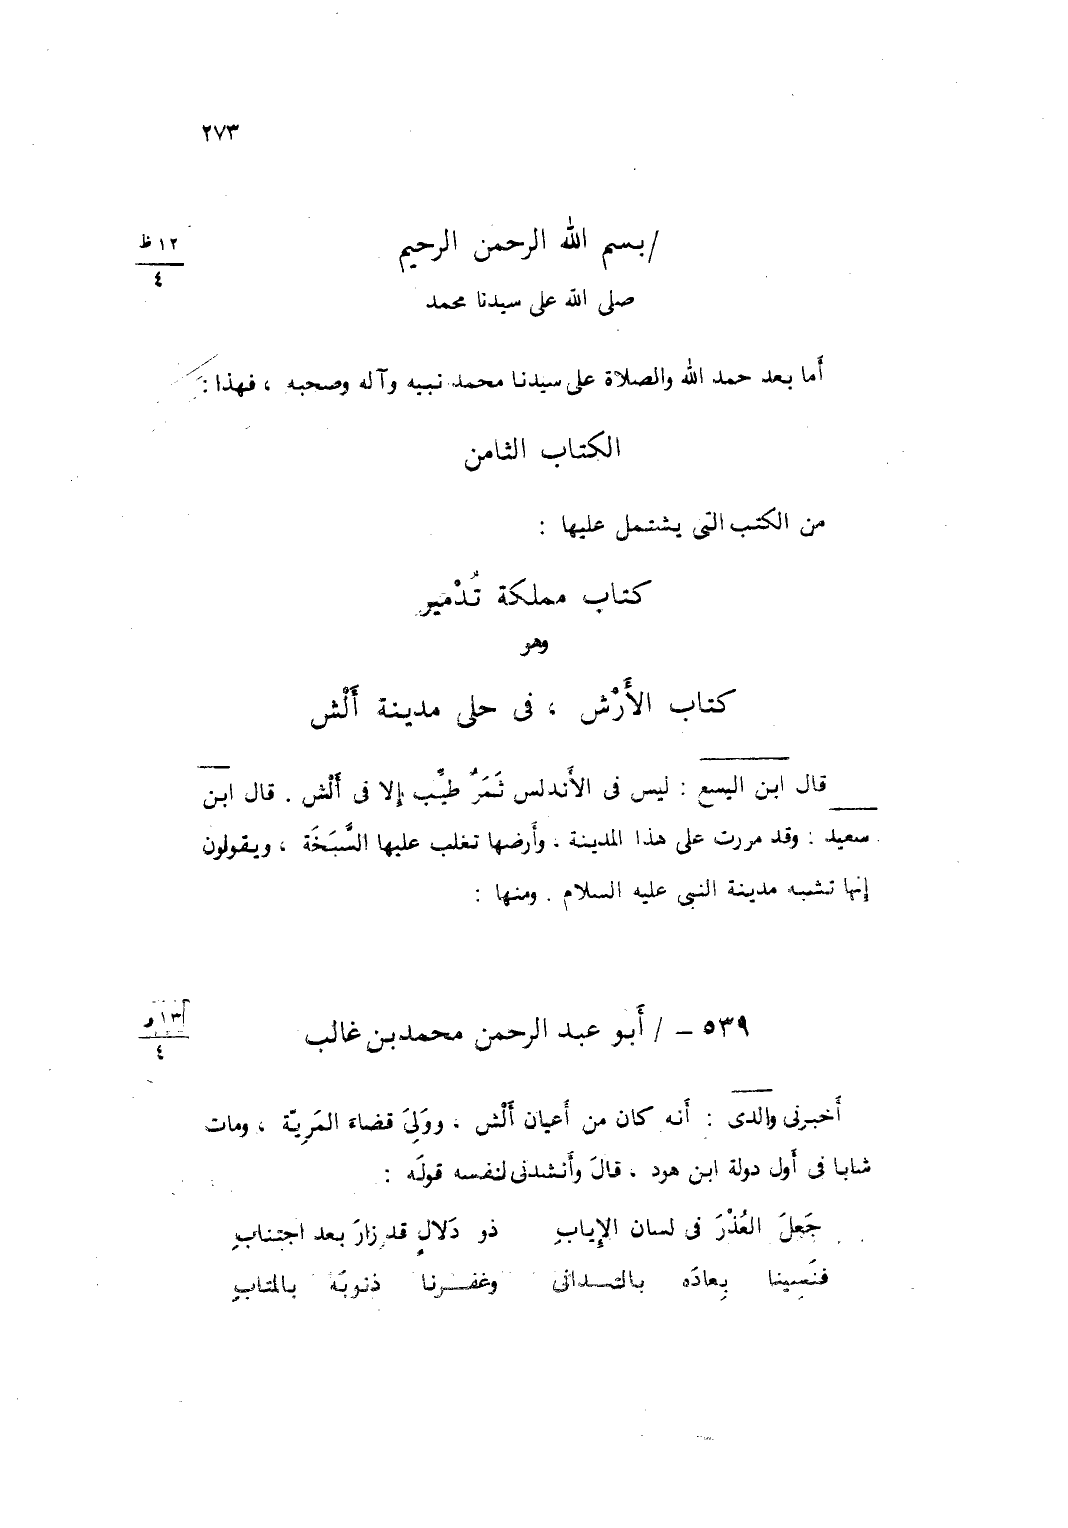 ٢٧٣
/ بسم الله الرحمن الرحيم
١٢ ظ
٤
صلى الله على سيدنا محمد
أما بعد حمد الله والصلاة على سيدنا محمد نبيه وآله وصحبه ، فهذا :
الكتاب الثامن
من الكتب التى يشتمل عليها :
كتاب مملكة تُدْمير
وهو
كتاب الأَرْش ، فى حلى مدينة أَلْش
قال ابن اليسع : ليس فى الأندلس ثَمَرٌ طيِّب إلا فى أَلْش . قال ابن
سعيد : وقد مررت على هذا المدينة ، وأَرضها تغلب عليها السَّبَخَة ، ويقولون
إنها تشبه مدينة النبى عليه السلام . ومنها :
٥٣٩ – / أَبو عبد الرحمن محمد بن غالب
١٣ و
٤
أَخبرنى والدى : أَنه كان من أَعيان أَلْش ، ووَلِىَ قضاء المَرِيّة ، ومات
شابا فى أَول دولة ابن هود ، قالَ وأَنشدنى لنفسه قولَه :
جَعلَ العُذْرَ فى لسان الإِيابِ ذو دَلالٍ قد زارَ بعد اجتنابِ
فنَسِينا بِعادَه بالتـدانى وغفـرنا ذنوبَهَ بالمتابِ